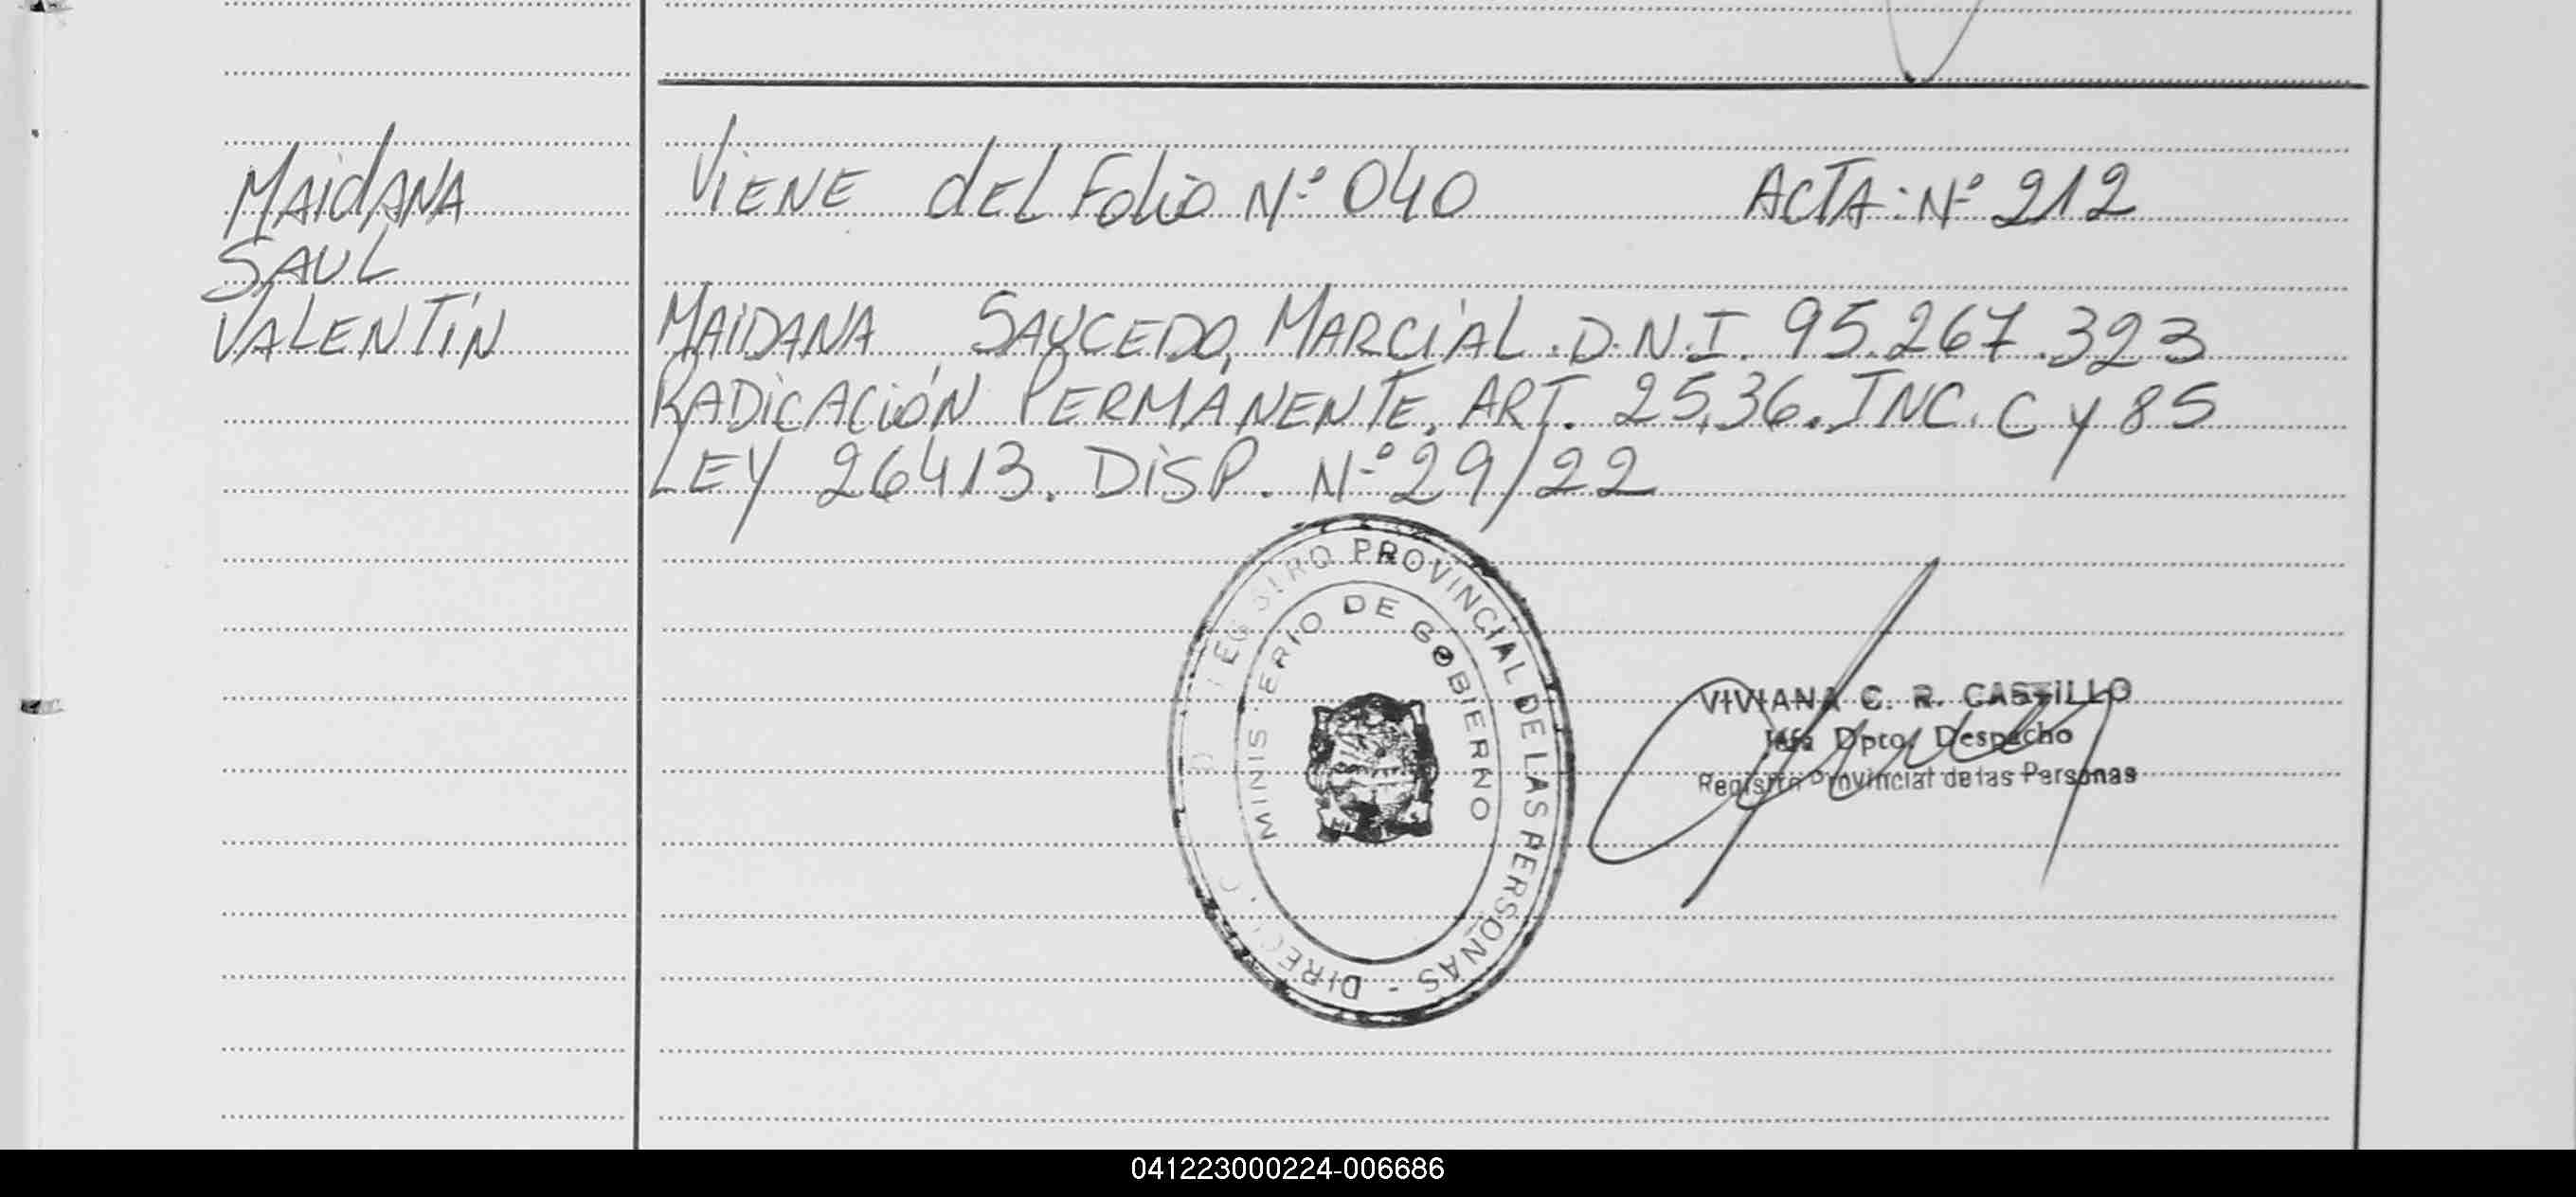 MAIDANA
SAUL
VALENTÍN
VIENE DEL FOLIO Nº 040 ACTA: Nº 212
MAIDANA SAUCEDO, MARCIAL. D.N.I. 95.267.323
RADICACIÓN PERMANENTE, ART. 25,36. INC. C y 85
LEY 26413. DISP. Nº 29/22
PROVINCIAL DE LAS PERSONAS -
DE GOBIERNO
VIVIANA C. R. CASTILLO
Jefa Dpto. Despacho
Registro Provincial de las Personas
041223000224-006686